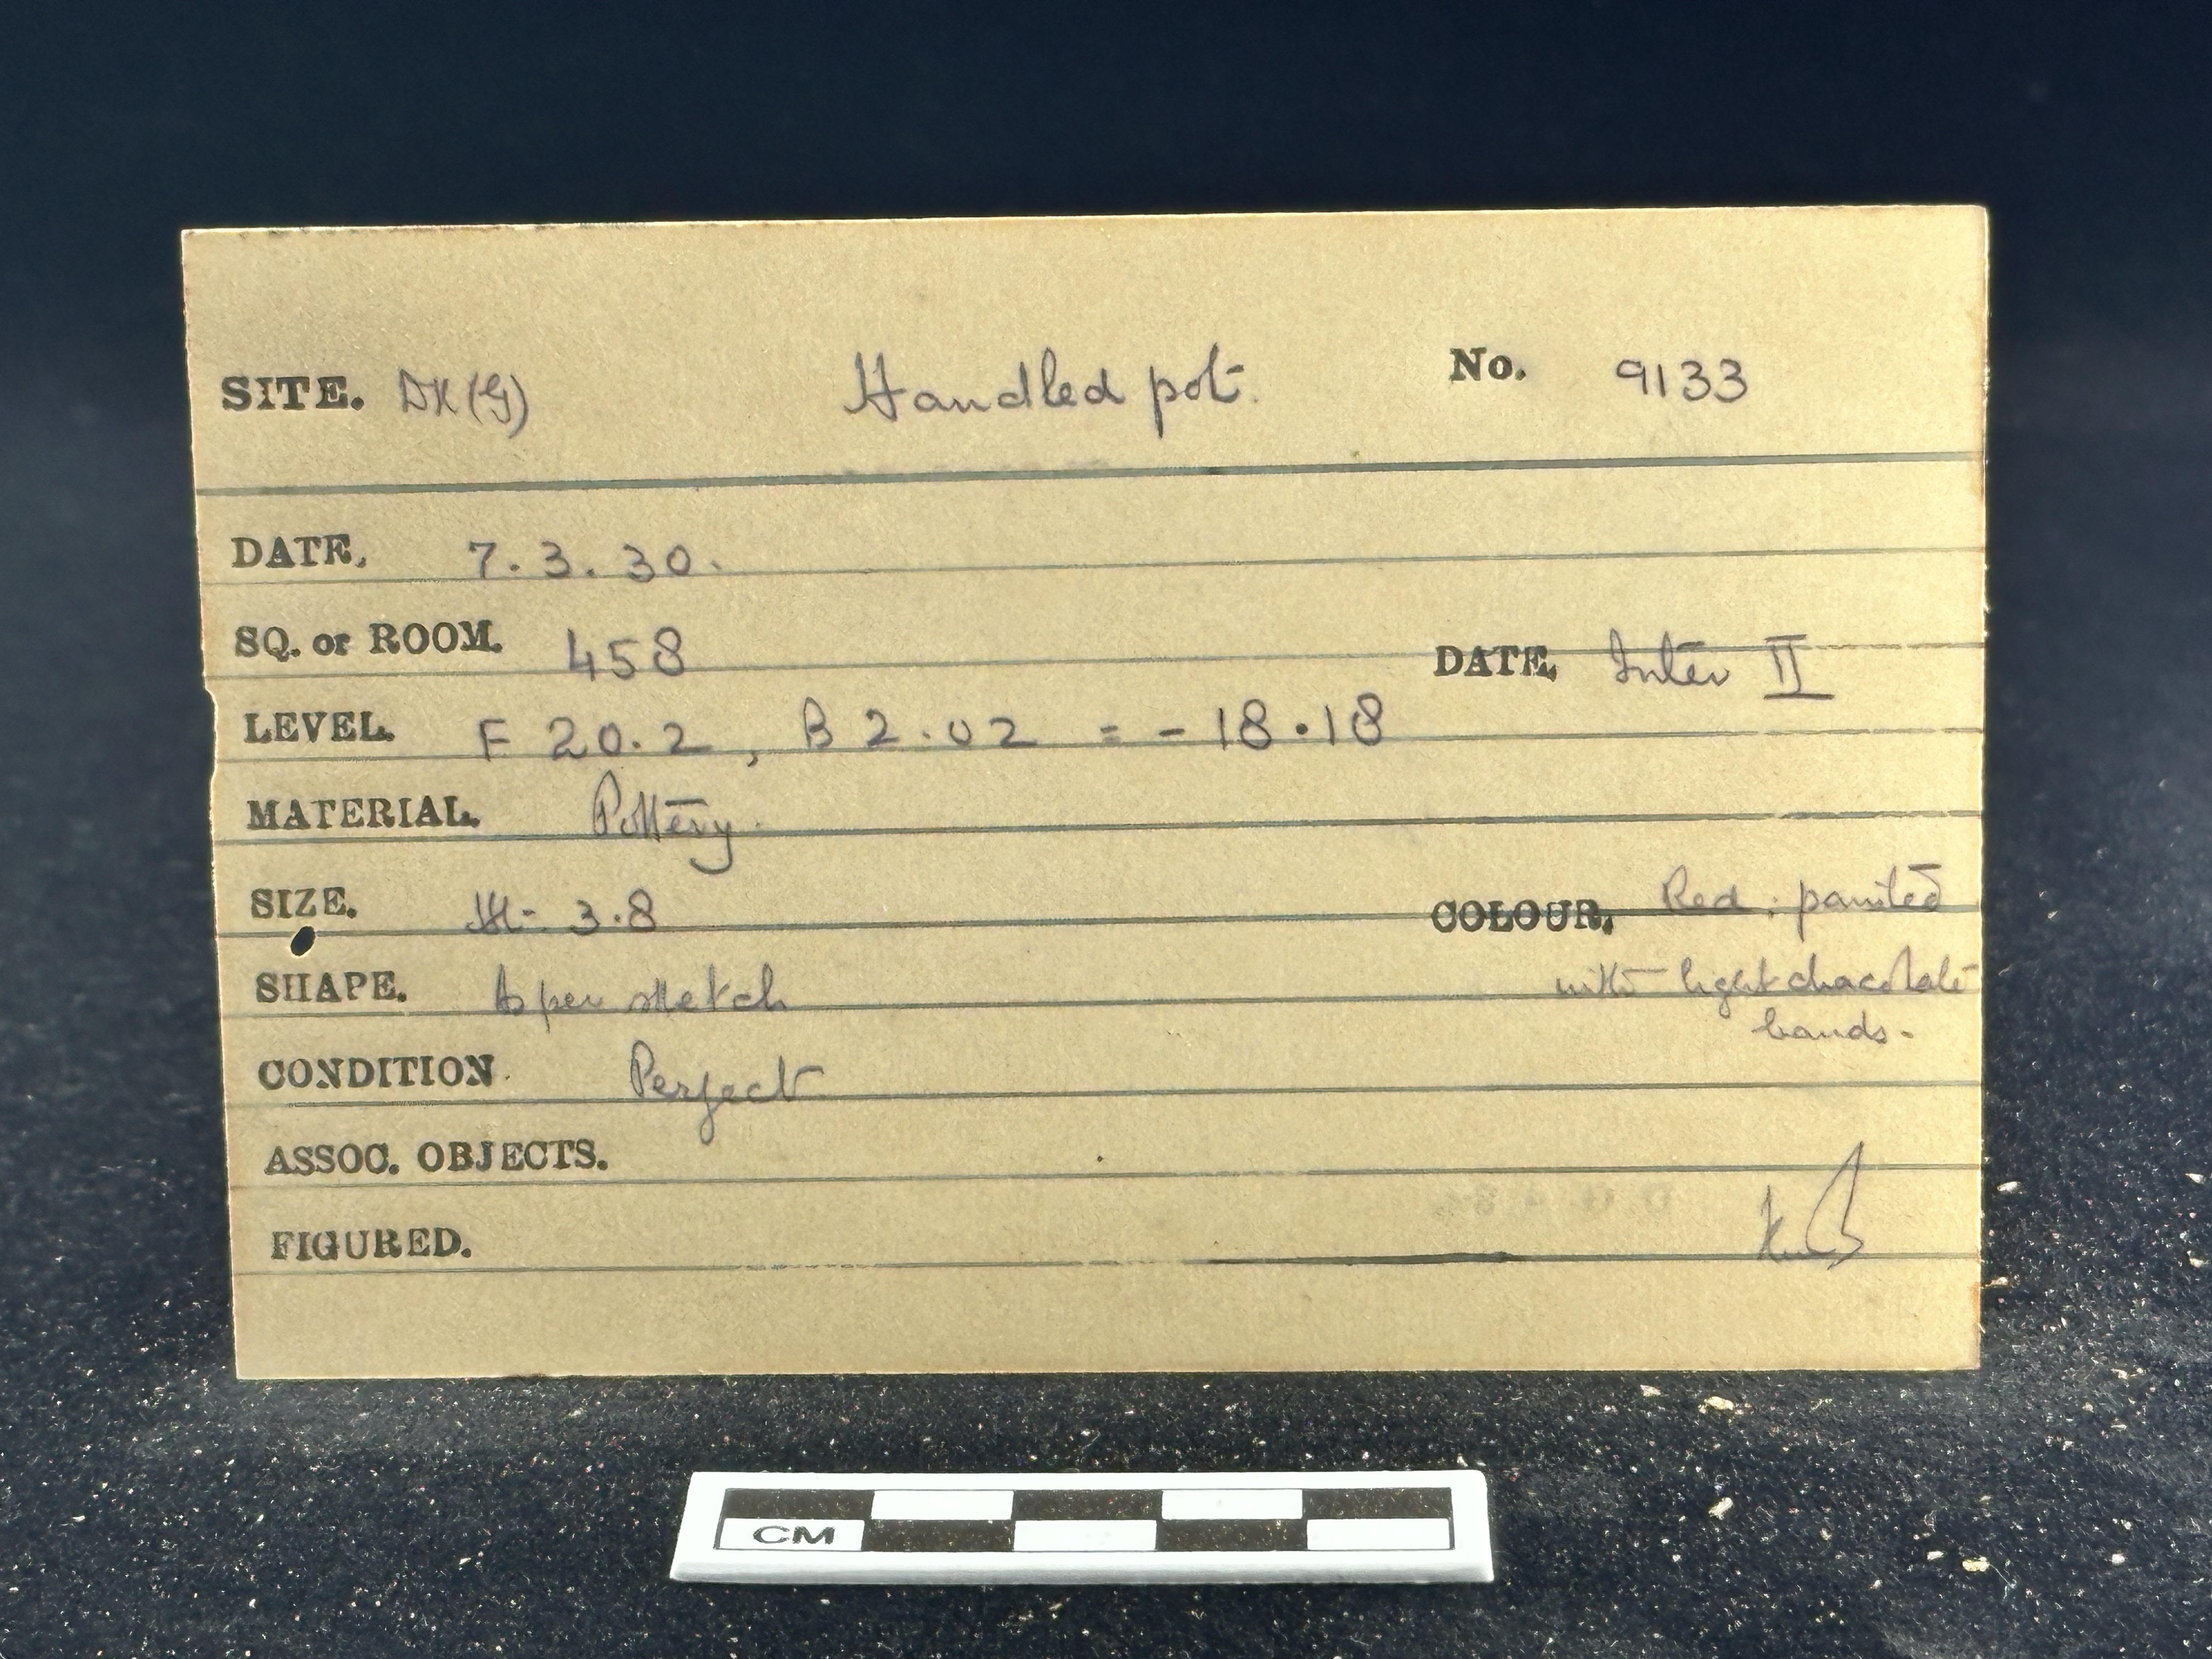 SITE. DK(G) Handled pot. No. 9133
DATE. 7.3.30.
SQ. or ROOM. 458 DATE. Inter II
LEVEL. F 20.2, B 2.02 = -18.18
MATERIAL. Pottery.
SIZE. Ht: 3.8 COLOUR. Red; painted
SHAPE. As per sketch with light chacolate
bands.
CONDITION. Perfect
ASSOC. OBJECTS.
FIGURED.
CM